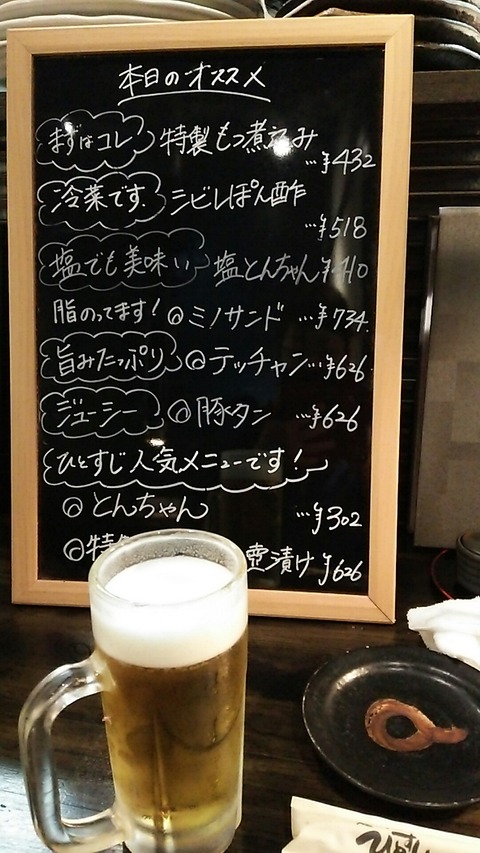 本日のオススメ
まずはコレ 特製もつ煮込み
…¥432
冷菜です。シビレぽん酢
…¥518
塩でも美味い 塩とんちゃん ¥410
脂のってます! ◎ミノサンド …¥734.
旨みたっぷり ◎テッチャン…¥626
ジューシー ◎豚タン …¥626
ひとすじ人気メニューです!
◎とんちゃん …¥302
◎特 壺漬け ¥626